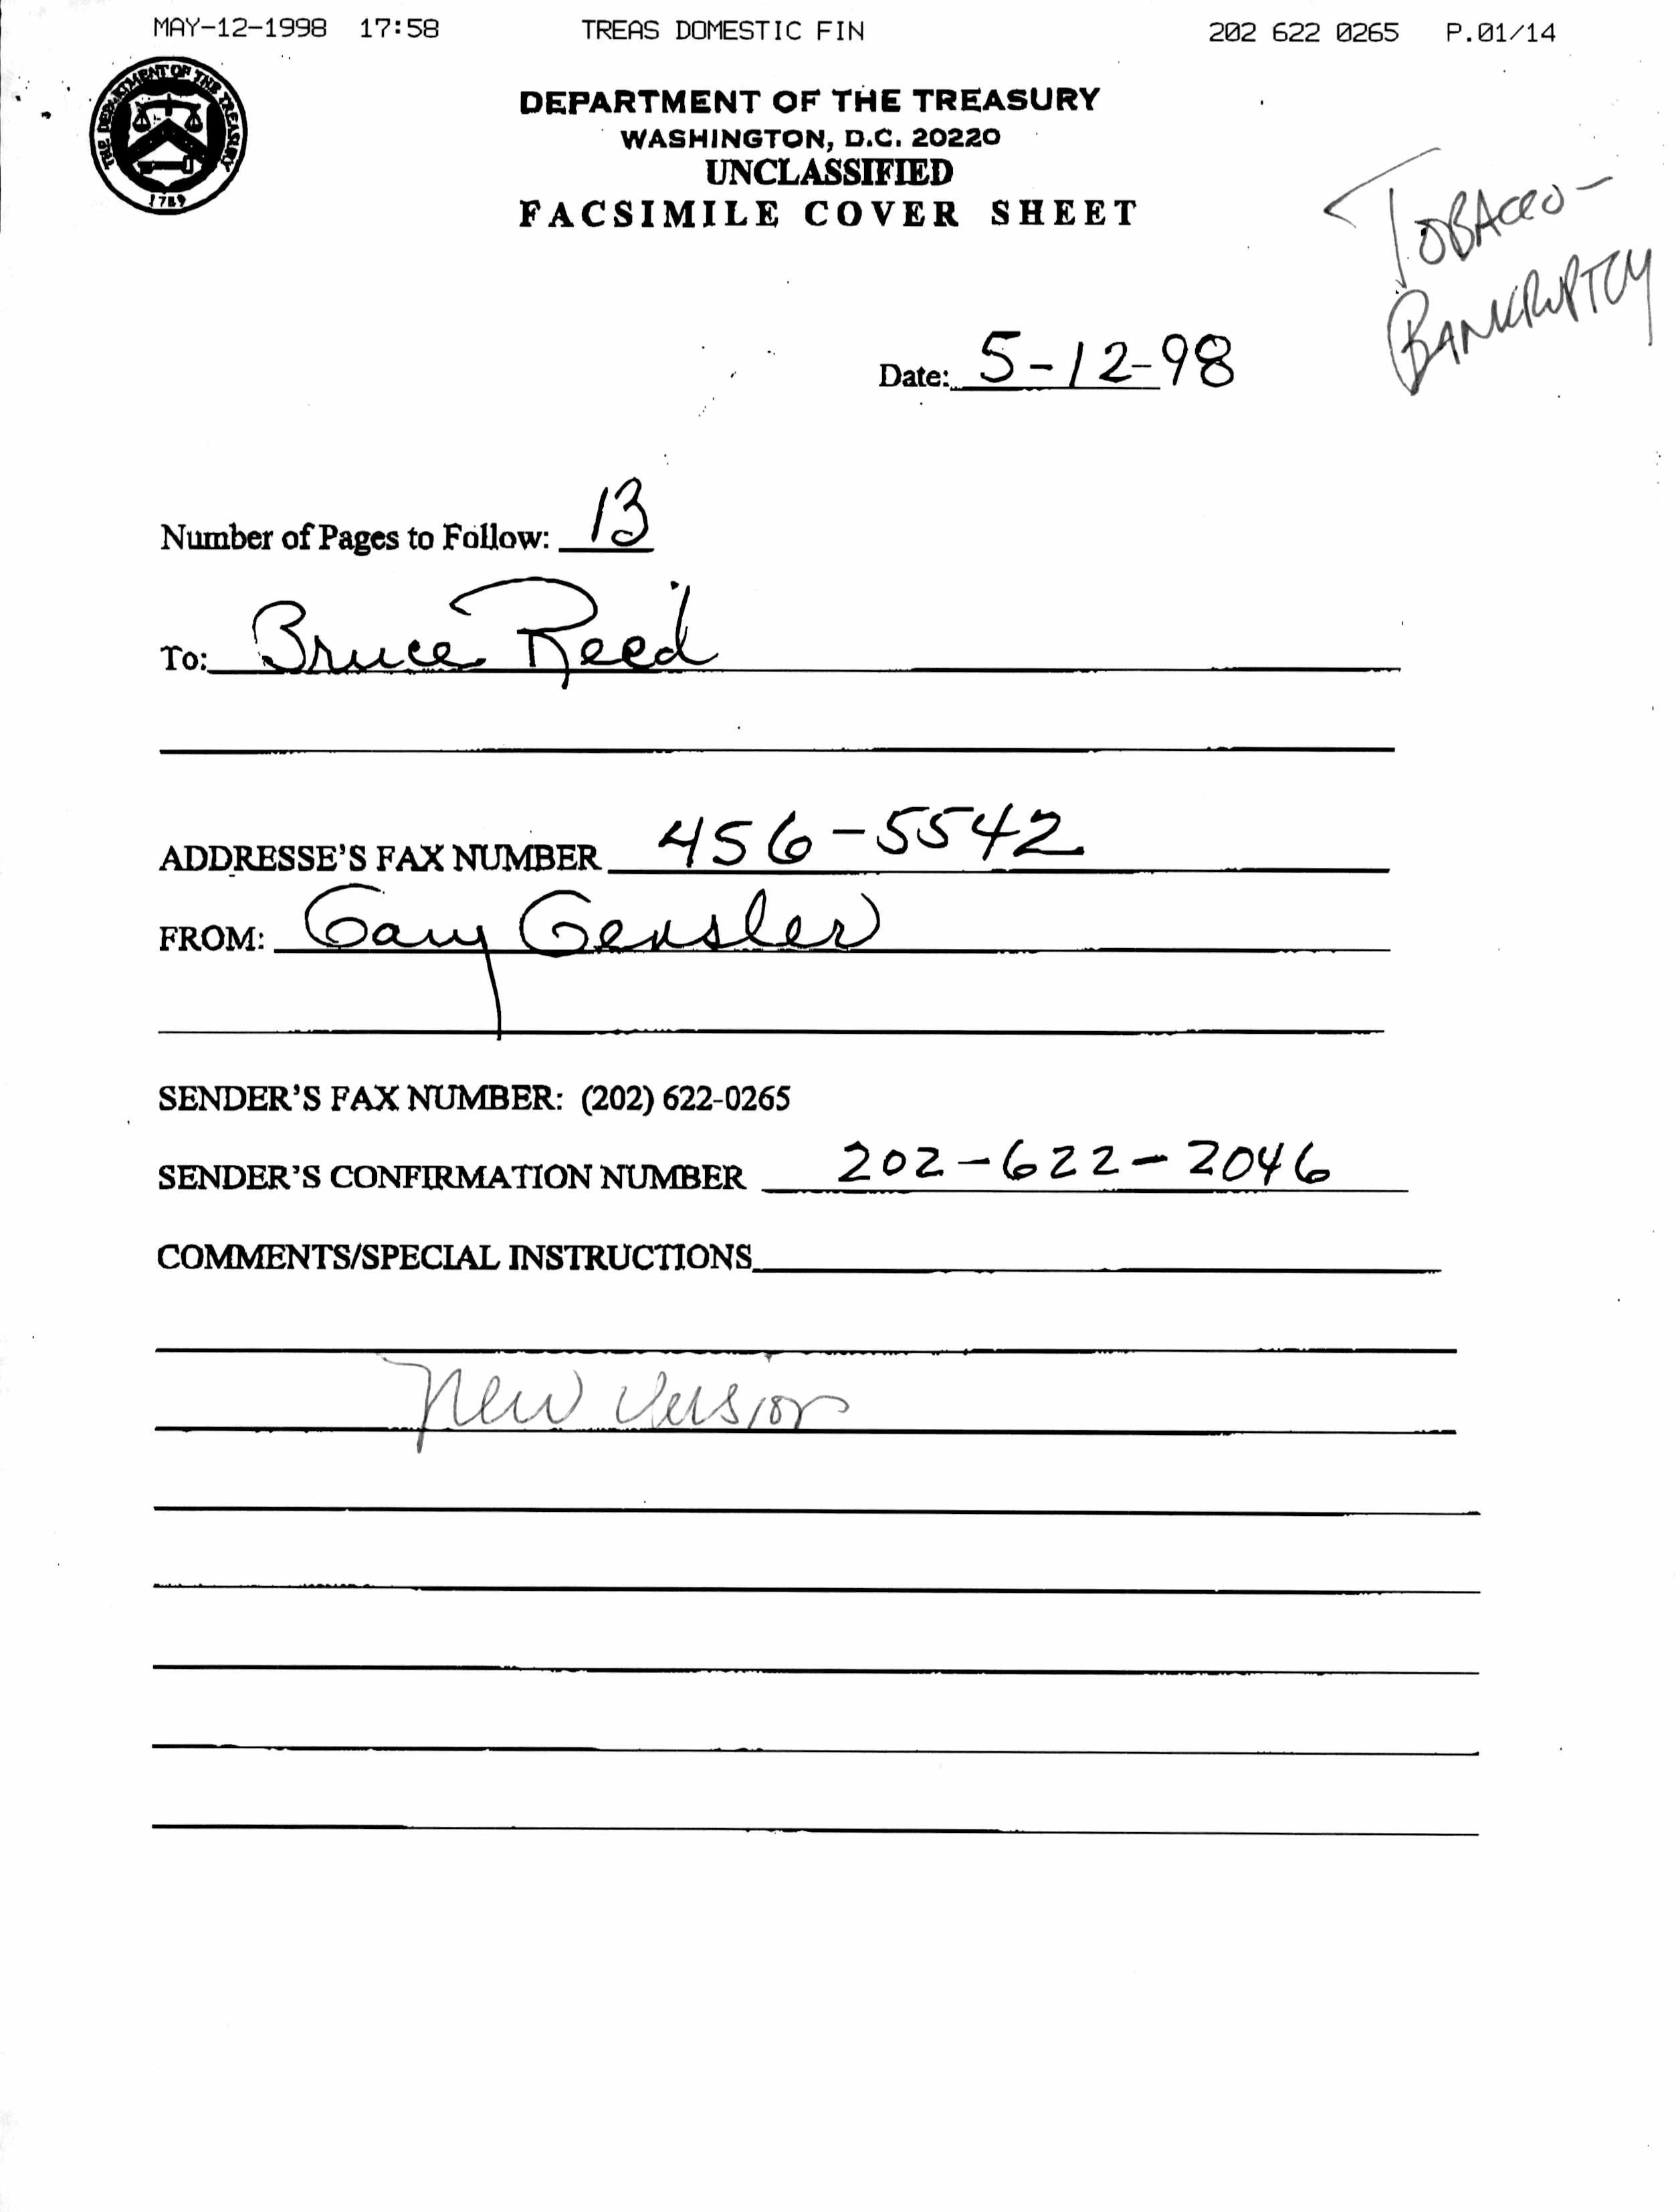 MAY-12-1998 17:58 TREAS DOMESTIC FIN 202 622 0265 P.01/14
THE DEPARTMENT OF THE TREASURY
1789
DEPARTMENT OF THE TREASURY
WASHINGTON, D.C. 20220
UNCLASSIFIED
FACSIMILE COVER SHEET
TOBACCO-
BANKRUPTCY
Date: 5-12-98
Number of Pages to Follow: 13
To: Bruce Reed
ADDRESSE'S FAX NUMBER 456-5542
FROM: Gary Gensler
SENDER'S FAX NUMBER: (202) 622-0265
SENDER'S CONFIRMATION NUMBER 202-622-2046
COMMENTS/SPECIAL INSTRUCTIONS
New version